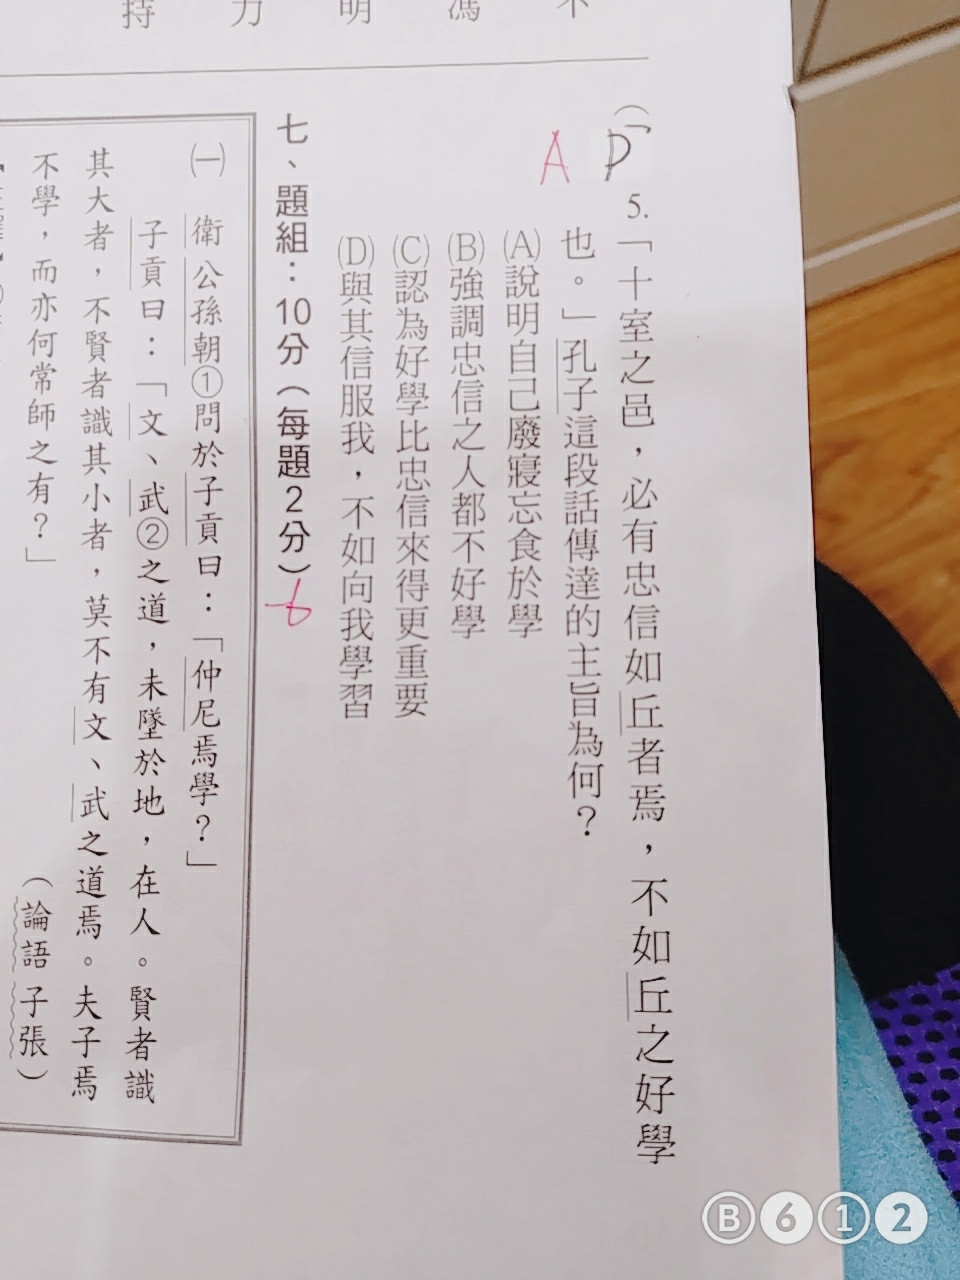 不
馮
明
力
持
(D
A
5.「十室之邑，必有忠信如丘者焉，不如丘之好學
也。」孔子這段話傳達的主旨為何？
(A)說明自己廢寢忘食於學
(B)強調忠信之人都不好學
(C)認為好學比忠信來得更重要
(D)與其信服我，不如向我學習
七、題組：10分（每題2分）
6
(一)衛公孫朝①問於子貢曰：「仲尼焉學？」
子貢曰：「文、武②之道，未墜於地，在人。賢者識
其大者，不賢者識其小者，莫不有文、武之道焉。夫子焉
不學，而亦何常師之有？」
（論語 子張）
B612